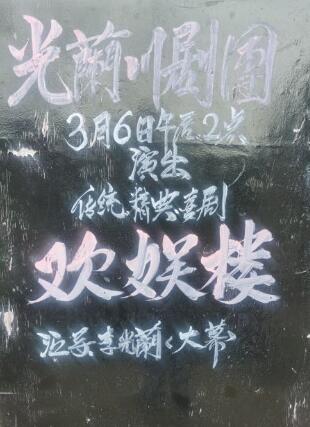 光兰川剧团
3月6日午后2点
演出
传统精典喜剧
欢娱楼
李光兰〈大幕